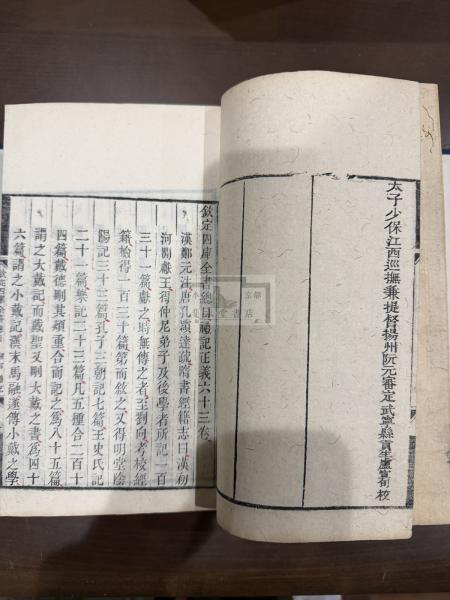 太子少保江西巡撫兼提督揚州阮元審定武寧縣貢生盧宣旬校
欽定四庫全書總目禮記正義六十三卷
漢鄭元注唐孔穎達疏隋書經籍志曰漢初
河間獻王得仲尼弟子及後學者所記一百
三十一篇獻之時無傳之者至劉向考校經
籍檢得一百三十篇第而敘之又得明堂陰
陽記三十三篇孔子三朝記七篇王史氏記
二十一篇樂記二十三篇凡五種合二百十
四篇戴德刪其煩重合而記之爲八十五篇
謂之大戴記而戴聖又刪大戴之書爲四十
六篇謂之小戴記漢末馬融遂傳小戴之學
京都
書店